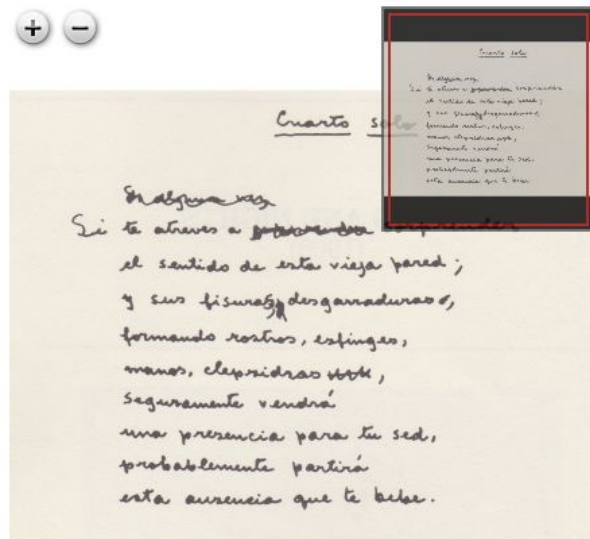 Cuarto solo
Si alguna vez
Si te atreves a sorprender
el sentido de esta vieja pared;
y sus fisuras, desgarraduras,
formando rostros, esfinges,
manos, clepsidras,
seguramente vendrá
una presencia para tu sed,
probablemente partirá
esta ausencia que te bebe.